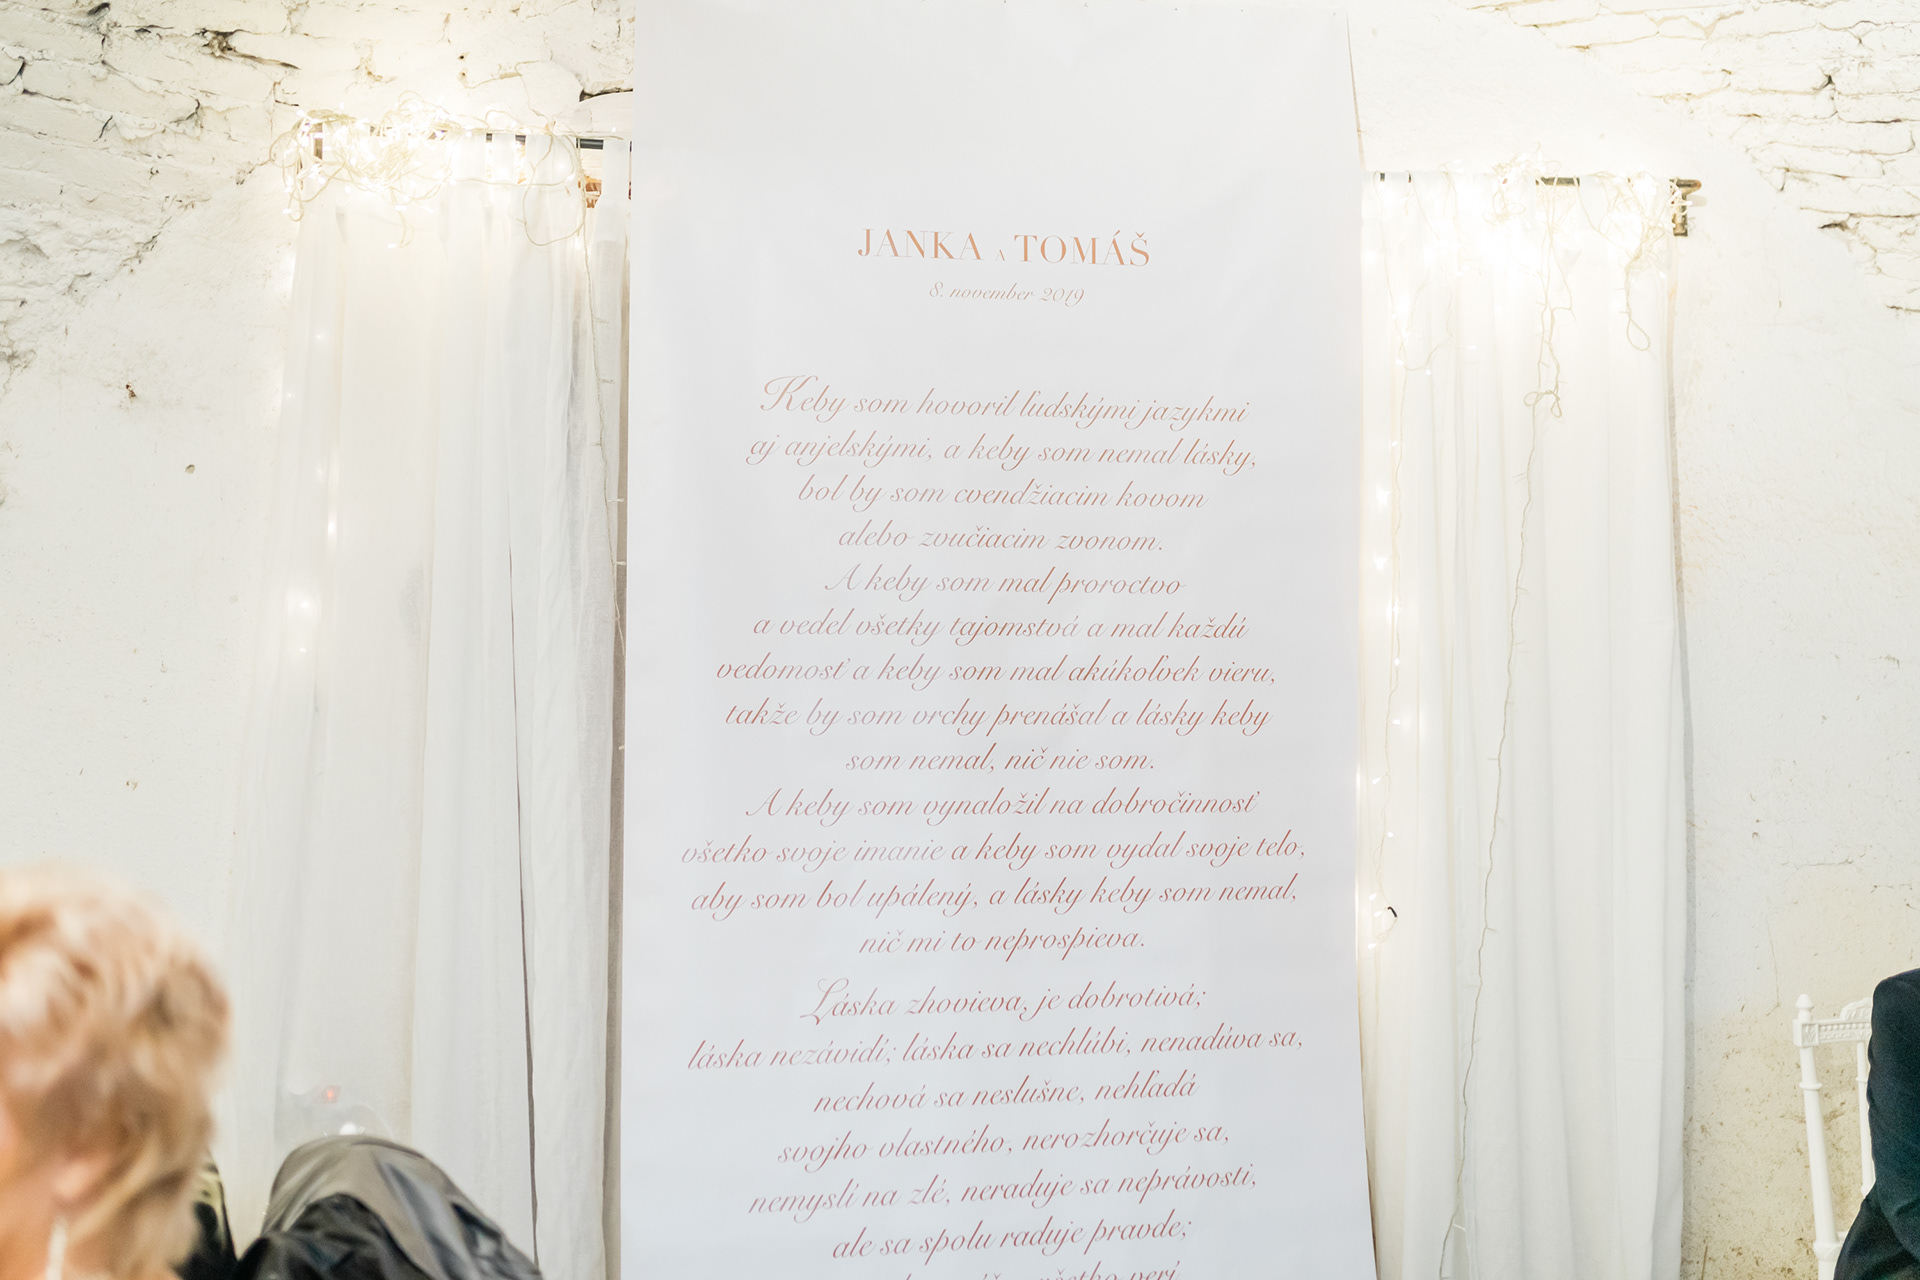 JANKA A TOMÁŠ
8. november 2019
Keby som hovoril ľudskými jazykmi
aj anjelskými, a keby som nemal lásky,
bol by som cvendžiacim kovom
alebo zvučiacim zvonom.
A keby som mal proroctvo
a vedel všetky tajomstvá a mal každú
vedomosť a keby som mal akúkoľvek vieru,
takže by som vrchy prenášal a lásky keby
som nemal, nič nie som.
A keby som vynaložil na dobročinnosť
všetko svoje imanie a keby som vydal svoje telo,
aby som bol upálený, a lásky keby som nemal,
nič mi to neprospieva.
Láska zhovieva, je dobrotivá;
láska nezávidí; láska sa nechlúbi, nenadúva sa,
nechová sa neslušne, nehľadá
svojho vlastného, nerozhorčuje sa,
nemyslí na zlé, neraduje sa neprávosti,
ale sa spolu raduje pravde;
všetko verí